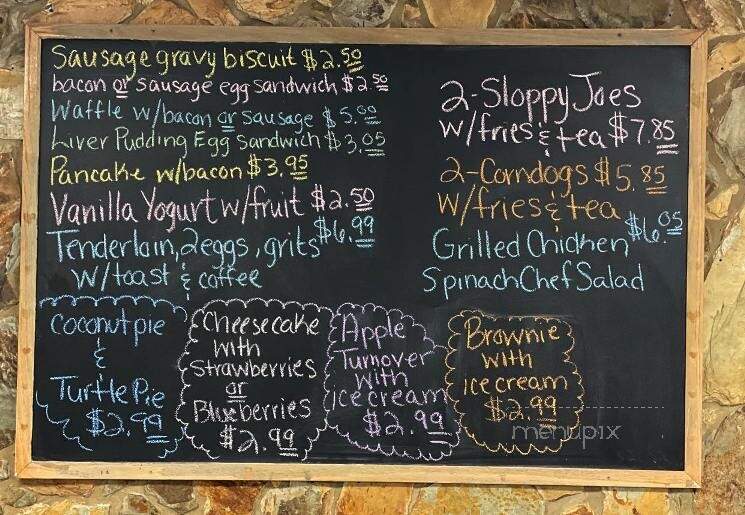 Sausage gravy biscuit $2.50
bacon or sausage egg sandwich $2.50
Waffle w/bacon or sausage $5.00
Liver Pudding Egg Sandwich $3.05
Pancake w/bacon $3.95
Vanilla Yogurt w/fruit $2.50
Tenderloin, 2 eggs, grits $6.99
w/toast & coffee
2-Sloppy Joes
w/fries & tea $7.85
2-Corndogs $5.85
w/fries & tea
Grilled Chicken $6.05
Spinach Chef Salad
Coconut pie
&
Turtle Pie
$2.99
Cheesecake
with
Strawberries
or
Blueberries
$2.99
Apple
Turnover
with
ice cream
$2.99
Brownie
with
ice cream
$2.99
menupix